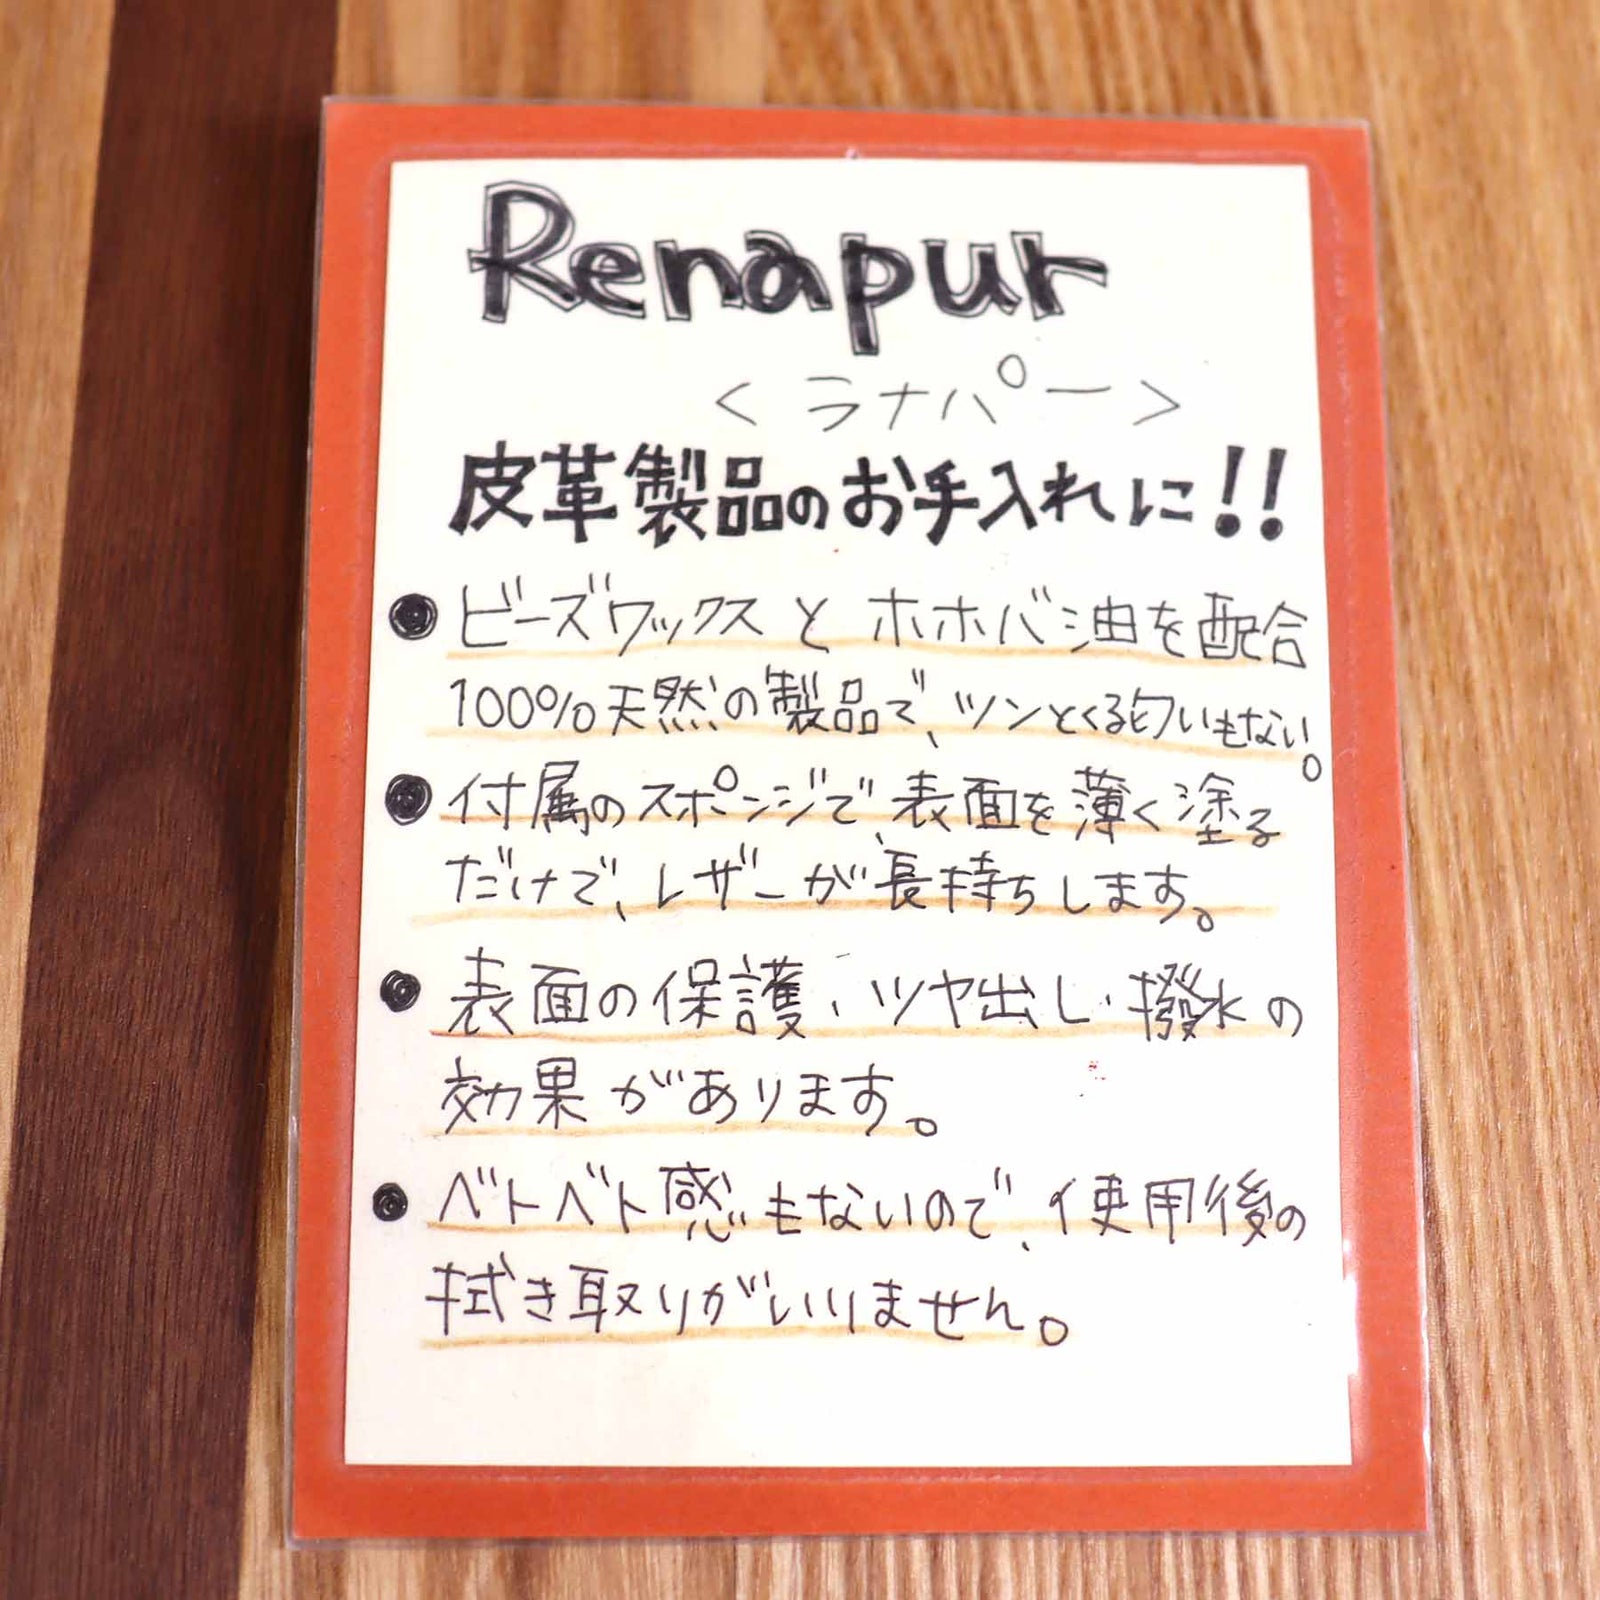 Renapur
<ラナパー>
皮革製品のお手入れに!!
●ビーズワックスとホホバ油を配合
100%天然の製品で、ツンとくる匂いもない。
●付属のスポンジで、表面を薄く塗る
だけで、レザーが長持ちします。
●表面の保護・ツヤ出し・撥水の
効果があります。
●ベトベト感もないので、使用後の
拭き取りがいりません。